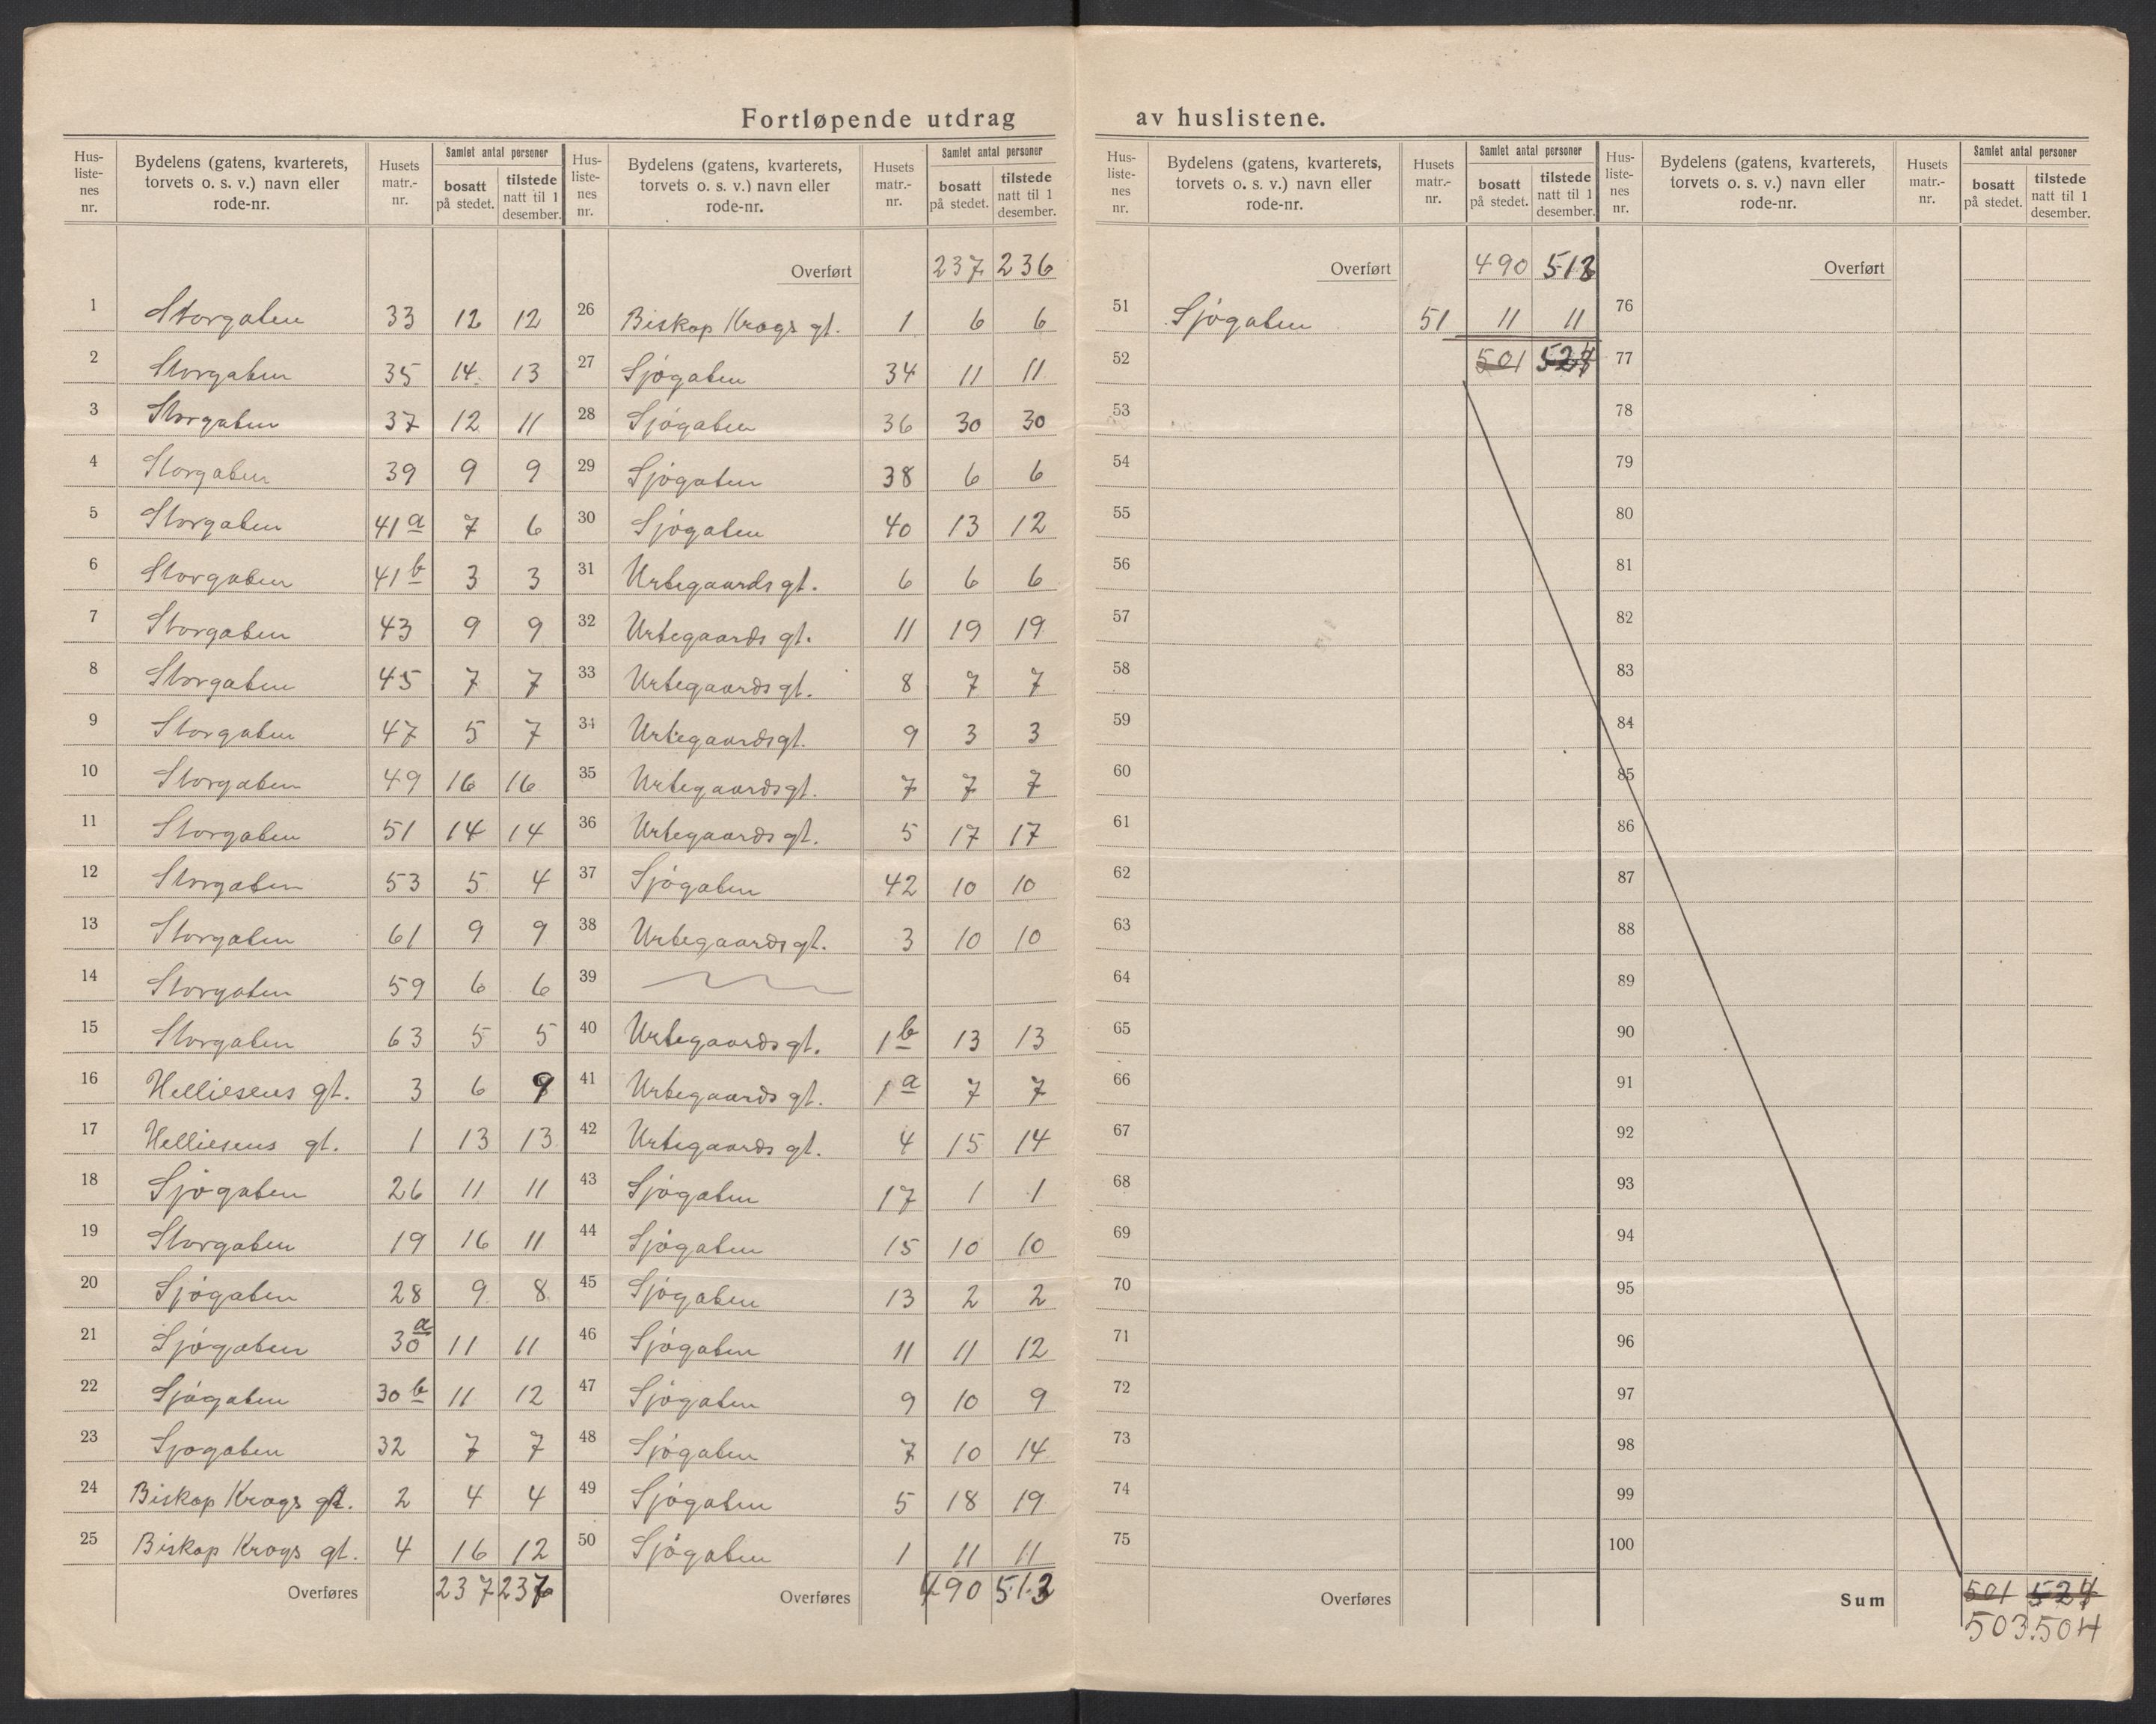 Fortløpende utdrag av huslistene.
Hus-listenes nr. Bydelens (gatens, kvarterets, torvets o. s. v.) navn eller rode-nr. Husets matr.-nr. Samlet antal personer bosatt på stedet. tilstede natt til 1 desember.
1 Storgaten 33 12 12
2 Storgaten 35 14 13
3 Storgaten 37 12 11
4 Storgaten 39 9 9
5 Storgaten 41a 7 6
6 Storgaten 41b 3 3
7 Storgaten 43 9 9
8 Storgaten 45 7 7
9 Storgaten 47 5 7
10 Storgaten 49 16 16
11 Storgaten 51 14 14
12 Storgaten 53 5 4
13 Storgaten 61 9 9
14 Storgaten 59 6 6
15 Storgaten 63 5 5
16 Helliesens gt. 3 6 9
17 Helliesens gt. 1 13 13
18 Sjøgaten 26 11 11
19 Storgaten 19 16 11
20 Sjøgaten 28 9 8
21 Sjøgaten 30a 11 11
22 Sjøgaten 30b 11 12
23 Sjøgaten 32 7 7
24 Biskop Krogs gt. 2 4 4
25 Biskop Krogs gt. 4 16 12
Overføres 237 236
Hus-listenes nr. Bydelens (gatens, kvarterets, torvets o. s. v.) navn eller rode-nr. Husets matr.-nr. Samlet antal personer bosatt på stedet. tilstede natt til 1 desember.
Overført 237 236
26 Biskop Krogs gt. 1 6 6
27 Sjøgaten 34 11 11
28 Sjøgaten 36 30 30
29 Sjøgaten 38 6 6
30 Sjøgaten 40 13 12
31 Urtegaards gt. 6 6 6
32 Urtegaards gt. 11 19 19
33 Urtegaards gt. 8 7 7
34 Urtegaards gt. 9 3 3
35 Urtegaards gt. 7 7 7
36 Urtegaards gt. 5 17 17
37 Sjøgaten 42 10 10
38 Urtegaards gt. 3 10 10
39
40 Urtegaards gt. 1b 13 13
41 Urtegaards gt. 1a 7 7
42 Urtegaards gt. 4 15 14
43 Sjøgaten 17 1 1
44 Sjøgaten 15 10 10
45 Sjøgaten 13 2 2
46 Sjøgaten 11 11 12
47 Sjøgaten 9 10 9
48 Sjøgaten 7 10 14
49 Sjøgaten 5 18 19
50 Sjøgaten 1 11 11
Overføres 490 513
Hus-listenes nr. Bydelens (gatens, kvarterets, torvets o. s. v.) navn eller rode-nr. Husets matr.-nr. Samlet antal personer bosatt på stedet. tilstede natt til 1 desember.
Overført 490 513
51 Sjøgaten 51 11 11
52 501 524
53
54
55
56
57
58
59
60
61
62
63
64
65
66
67
68
69
70
71
72
73
74
75
Overføres
Hus-listenes nr. Bydelens (gatens, kvarterets, torvets o. s. v.) navn eller rode-nr. Husets matr.-nr. Samlet antal personer bosatt på stedet. tilstede natt til 1 desember.
Overført
76
77
78
79
80
81
82
83
84
85
86
87
88
89
90
91
92
93
94
95
96
97
98
99
100
Sum 501 524
503 504